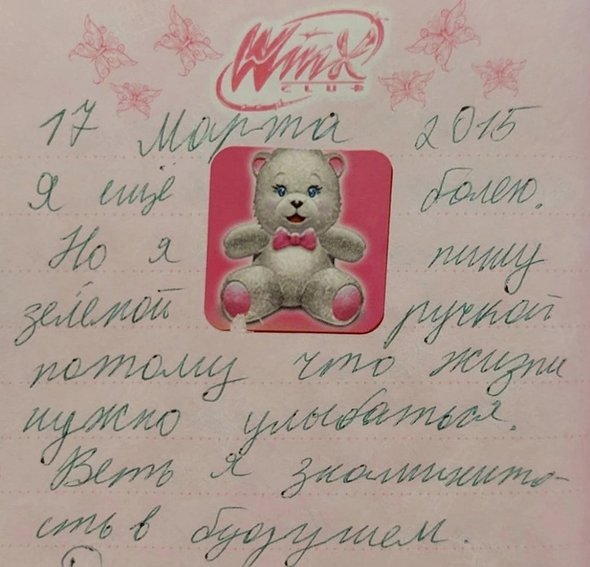 Winx
CLUB
17 Марта 2015
Я ещё болею.
Но я пишу
зелёной ручкой
потому что жизни
нужно улыбаться.
Веть я знаминито-
сть в будушем.